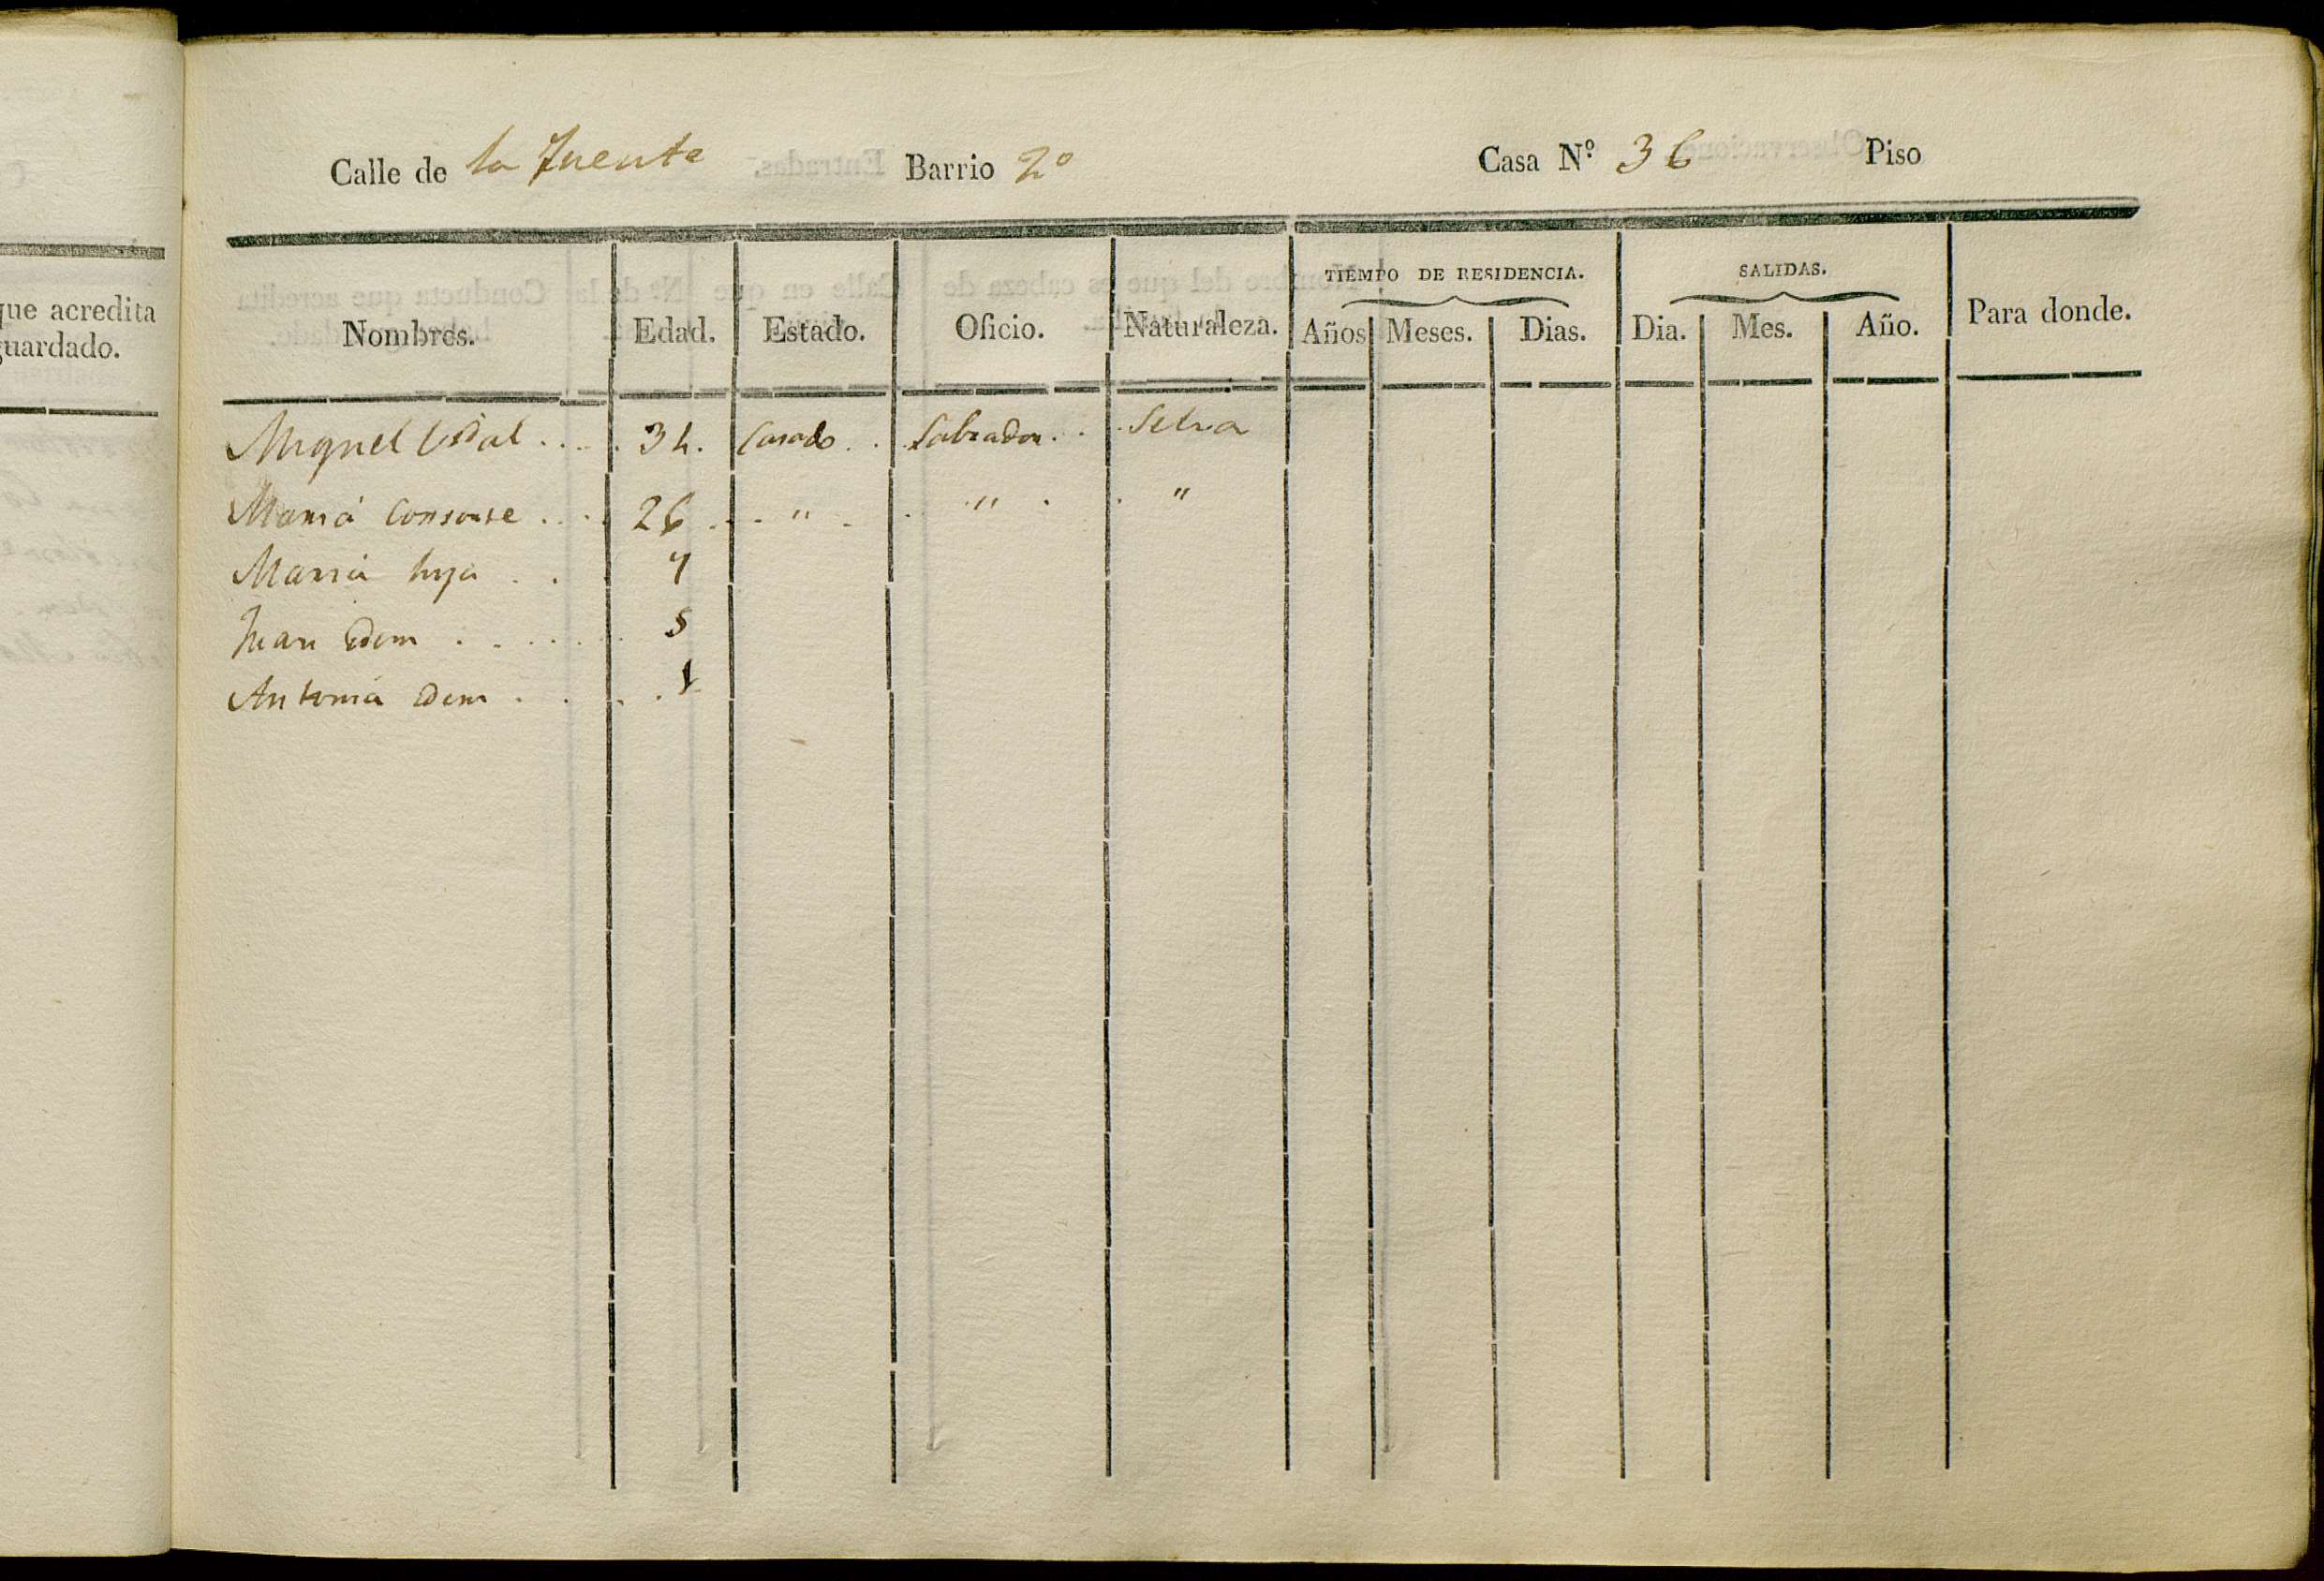 que acredita
guardado.
Calle de la Fuente Barrio 2º Casa Nº 36 Piso
Nombres. Edad. Estado. Oficio. Naturaleza. TIEMPO DE RESIDENCIA. Años Meses. Dias. SALIDAS. Dia. Mes. Año. Para donde.
Miguel Vidal .... 34. Casado .. Labrador .. Selva
Maria Consorte ... 26 .. " . . " . . "
Maria hija .. 7
Juan Idem ..... 5
Antonia Idem .... 1